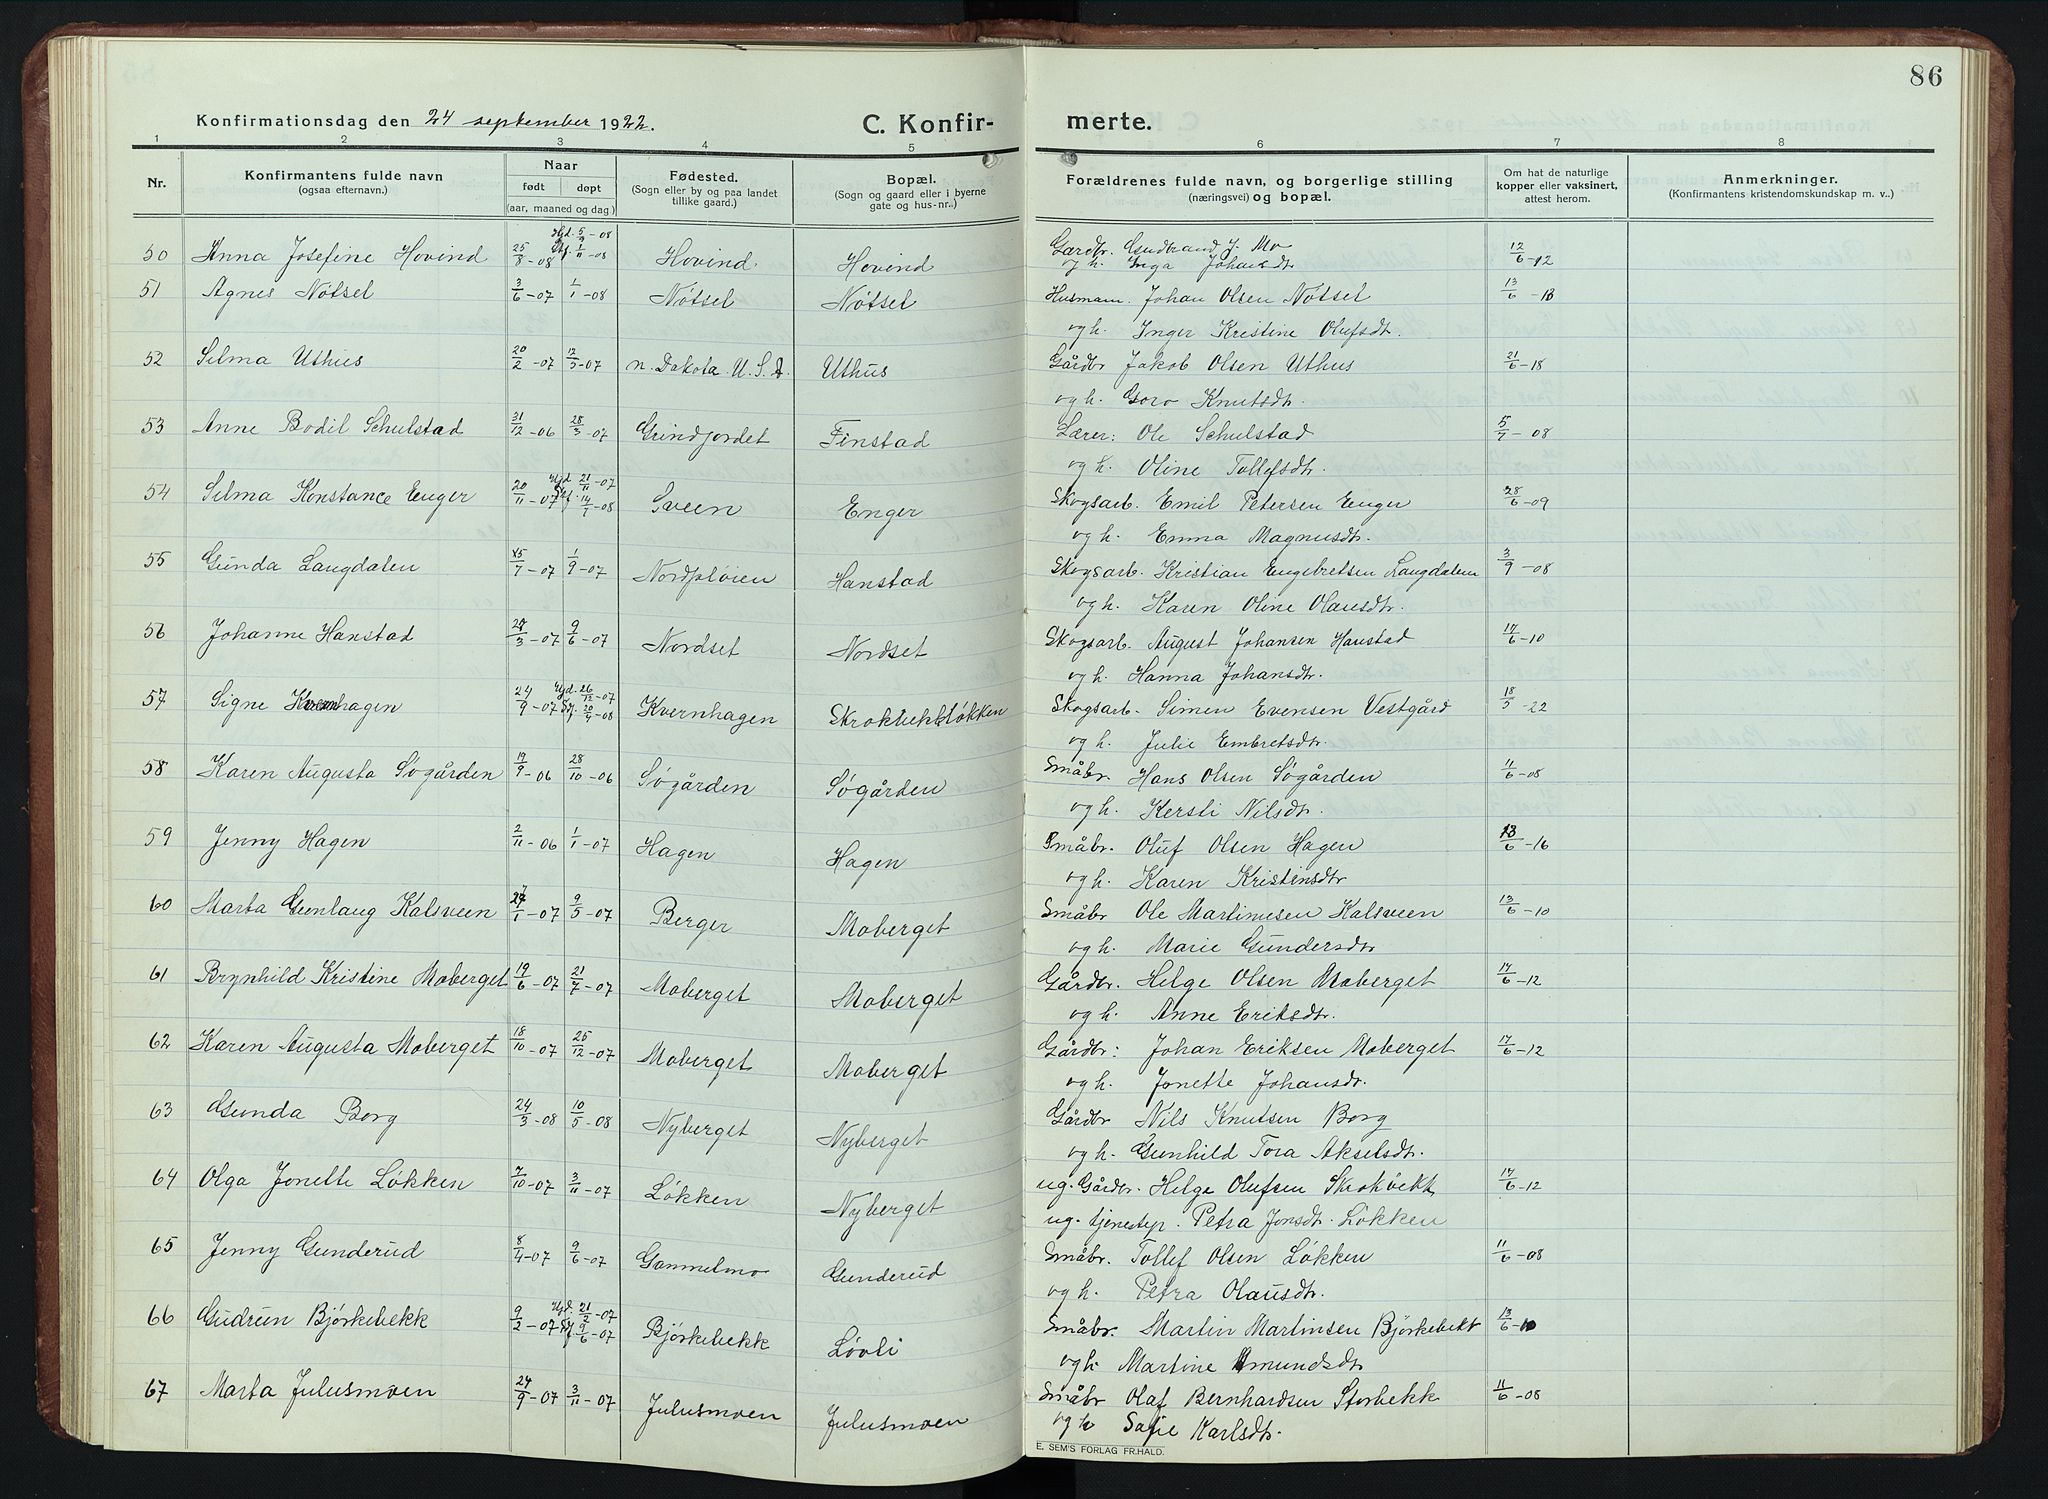 86
Konfirmationsdag den 24 september 1922.
C. Konfir-merte.
1 2 3 4 5 6 7 8
Nr.
Konfirmantens fulde navn
(ogsaa efternavn.)
Naar
født døpt
(aar, maaned og dag.)
Fødested.
(Sogn eller by og paa landet
tillike gaard.)
Bopæl.
(Sogn og gaard eller i byerne
gate og hus-nr.)
Forældrenes fulde navn, og borgerlige stilling
(næringsvei) og bopæl.
Om hat de naturlige
kopper eller vaksinert,
attest herom.
Anmerkninger.
(Konfirmantens kristendomskundskap m. v.)
50 Anna Josefine Hovind 25/8-08 Hjd. 5/9-08 1/11-08 Hovind. Hovind Gardbr. Gudbrand J. Mo 12/6-12
og h. Inga Johansdt.
51 Agnes Nötsel 3/6-07 1/1-08 Nötsel Nötsel Husmann. Johan Olsen Nötsel 13/6-18
og h. Inger Kristine Olufsdt.
52 Selma Uthus 20/2-07 12/5-07 n. Dakota U.S.A. Uthus Gårdbr Jakob Olsen Uthus 21/6-18
og h. Goro Knutsdt.
53 Anne Bodil Schulstad 31/12-06 28/3-07 Grindjordet Finstad Lærer: Ole Schulstad 5/7-08
og h. Oline Tollefsdt.
54 Selma Konstance Enger 20/11-07 Hjd. 21/11-07 14/7-08 Sveen Enger Skogsarb. Emil Petersen Enger 28/6-09
og h. Emma Magnusdt.
55 Gunda Langdalen 15/7-07 1/9-07 Nordpløien Hanstad Skogsarb. Kristian Engebretsen Langdalen 3/9-08
og h. Karen Oline Olausdt.
56 Johanne Hanstad 3-07 9/6-07 Nordset Nordset Skogsarb. August Johansen Hanstad 17/6-10
og h. Hanna Johansdt.
57 Signe Kvernhagen 24/9-07 Hjd. 26/12-07 20/4-08 Kvernhagen Skrokbekkløkken Skogsarb. Simen Evensen Vestgård 18/5-22
og h. Julie Embretsdt.
58 Karen Augusta Søgården 19/9-06 28/10-06 Søgården Søgården Småbr. Hans Olsen Søgården 11/6-08
og h. Kersti Nilsdt.
59 Jenny Hagen 2/11-06 1/1-07 Hagen Hagen Småbr. Oluf Olsen Hagen 13/6-16
og h. Karen Kristensdtr
60 Marta Gunlaug Kalsveen 27/1-07 9/5-07 Berger Moberget Småbr Ole Martinusen Kalsveen 13/6-10
og h. Marie Gundersdtr
61 Brynhild Kristine Moberget 19/6-07 21/7-07 Moberget Moberget Gårdbr. Helge Olsen Moberget 17/6-12
og h. Anne Eriksdtr.
62 Karen Augusta Moberget 18/10-07 25/12-07 Moberget Moberget Gårdbr: Johan Eriksen Moberget 17/6-12
og h. Jonette Johansdtr.
63 Gunda Borg 24/3-08 10/5-08 Nyberget Nyberget Gårdbr Nils Knutsen Borg
og h. Gunhild Tora Akselsdt.
64 Olga Jonette Løkken 7/10-07 3/11-07 Løkken Nyberget ug. Gårdbr. Helge Olufsen Skrokbekk 17/6-12
ug. tjenestep. Petra Jonsdt. Løkken
65 Jenny Gunderud 8/4-07 9/6-07 Gammelmo Gunderud Småbr. Tollef Olsen Løkken 11/6-08
og h. Petra Olausdtr.
66 Gudrun Bjørkebekk 9/2-07 Hjd. 21/2-07 9/6-07 Bjørkebekk Løvli Småbr. Martin Martinsen Bjørkebekk 13/6-10
og h. Martine Amundsdtr
67 Marta Julusmoen 24/9-07 3/11-07 Julusmoen Julusmoen Småbr Olaf Bernhardsen Storbekk 11/6-08
og h Sofie Karlsdtr.
E. SEM'S FORLAG FR.HALD.